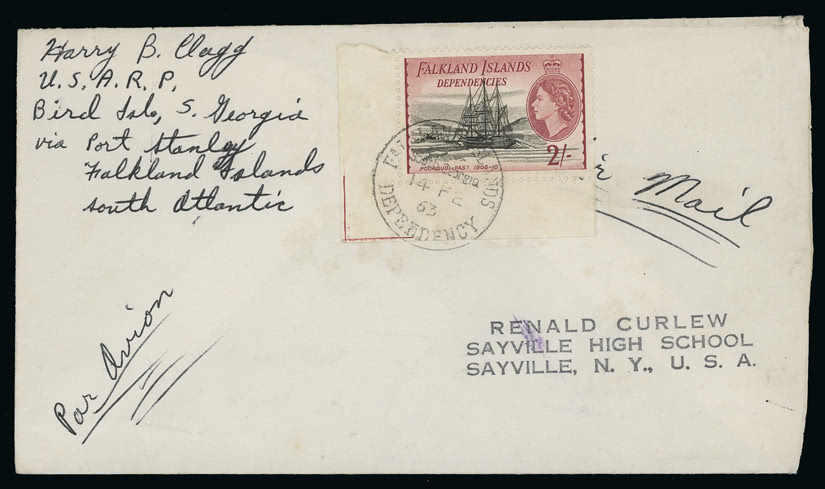 Harry B. Clagg
U.S.A.R.P.
Bird Isle, S. Georgia
via Port Stanley
Falkland Islands
South Atlantic
FALKLAND ISLANDS
DEPENDENCIES
POURQUOI-PAS? 1908-10
2/-
DEPENDENCY
14
63
Mail
Par Avion
RENALD CURLEW
SAYVILLE HIGH SCHOOL
SAYVILLE, N. Y., U. S. A.